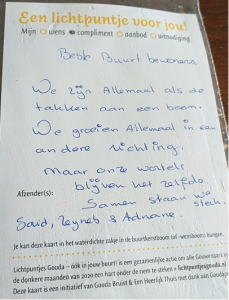 Een lichtpuntje voor jou!
Mijn ○ wens ● compliment ○ aanbod ○ uitnodiging
Beste Buurt bewoners
We zijn Allemaal als de
takken aan een boom.
We groeien Allemaal in een
andere richting.
Maar onze wortels
blijven het zelfde.
Afzender(s):
Samen staan we
sterk.
Said, Zeyneb & Adnane.
Je kan deze kaart in het waterdichte zakje in de buurtkerstboom (of -wensboom) hangen.
Lichtpuntjes Gouda – óók in jouw buurt! is een gezamenlijke actie om alle Gouwenaars in
de donkere maanden van 2020 een hart onder de riem te steken » lichtpuntjesgouda.nl
Deze kaart is een initiatief van Gouda Bruist & Een Heerlijk Thuis met dank aan